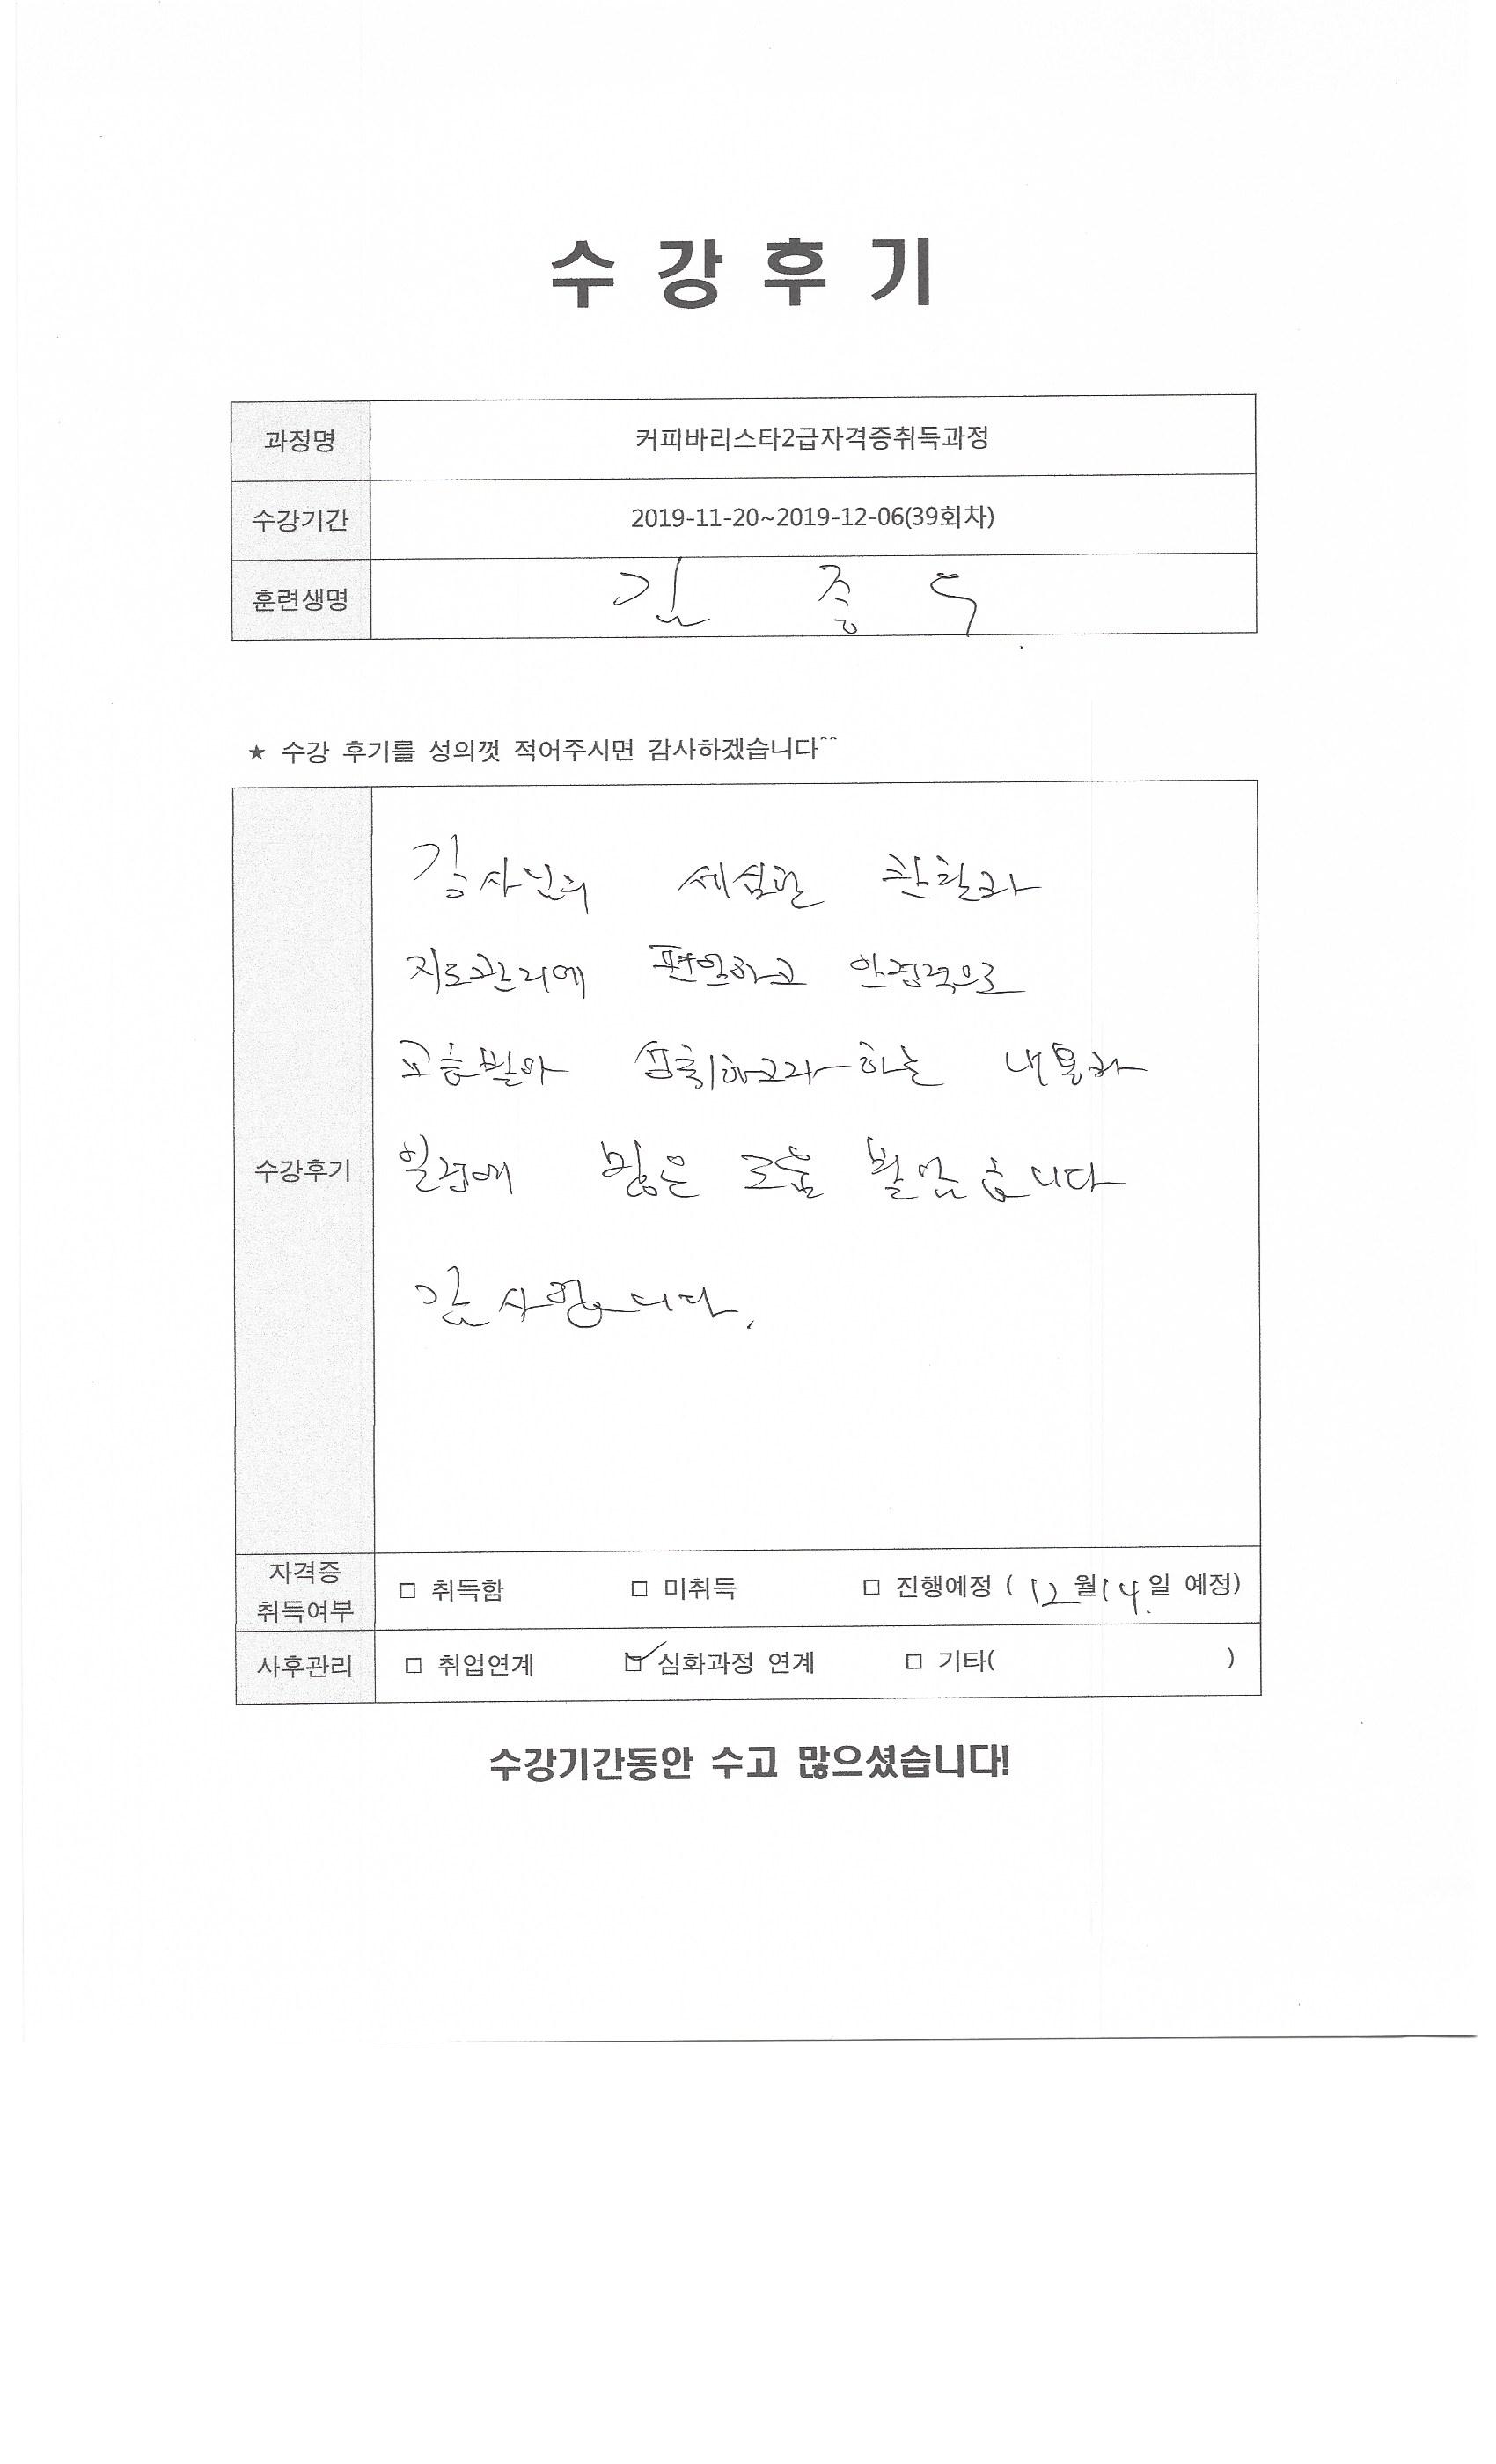 수강후기
과정명 커피바리스타2급자격증취득과정
수강기간 2019-11-20~2019-12-06(39회차)
훈련생명 김
★ 수강 후기를 성의껏 적어주시면 감사하겠습니다^^
강사님의 세심한 관찰과
지도관리에 편안하고 안정적으로
교육받아 하는 내용과
일정에 많은 도움 받았습니다
감사합니다.
수강후기
자격증 취득여부 □ 취득함 □ 미취득 □ 진행예정 ( 12월 14일 예정)
사후관리 □ 취업연계 ☑ 심화과정 연계 □ 기타( )
수강기간동안 수고 많으셨습니다!